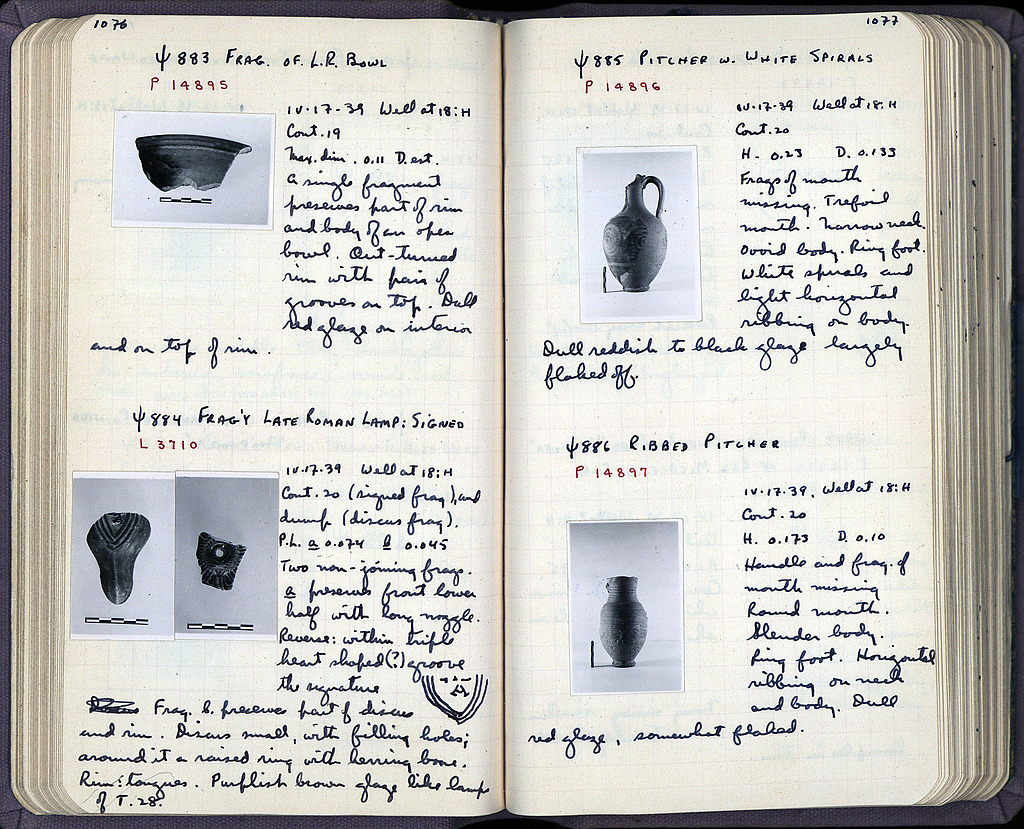 1076
Ψ 883 FRAG. OF L.R. BOWL
P 14895
IV-17-39 Well at 18:H
Cont. 19
Max. dim. 0.11 D. est.
A single fragment
preserves part of rim
and body of an open
bowl. Out-turned
rim with pair of
grooves on top. Dull
red glaze on interior
and on top of rim.
Ψ 884 FRAG'Y LATE ROMAN LAMP: SIGNED
L 3710
IV.17.39 Well at 18:H
Cont. 20 (signed frag), and
dump (discus frag).
P.L. a 0.074 b 0.045
Two non-joining frags.
a preserves front lower
half with long nozzle.
Reverse: within triple
heart shaped(?) groove
the signature
Frag. b. preserves part of discus
and rim. Discus small, with filling holes;
around it a raised ring with herring bone.
Rim: tongues. Purplish brown glaze like lamps
of T. 28.
1077
Ψ 885 PITCHER W. WHITE SPIRALS
P 14896
IV-17-39 Well at 18:H
Cont. 20
H. 0.23 D. 0.133
Frags of mouth
missing. Trefoil
mouth. Narrow neck
Ovoid body. Ring foot.
White spirals and
light horizontal
ribbing on body.
Dull reddish to black glaze largely
flaked off.
Ψ 886 RIBBED PITCHER
P 14897
IV-17-39, Well at 18:H
Cont. 20
H. 0.173 D. 0.10
Handle and frag. of
mouth missing
Round mouth.
Slender body.
Ring foot. Horizontal
ribbing on neck
and body. Dull
red glaze, somewhat flaked.